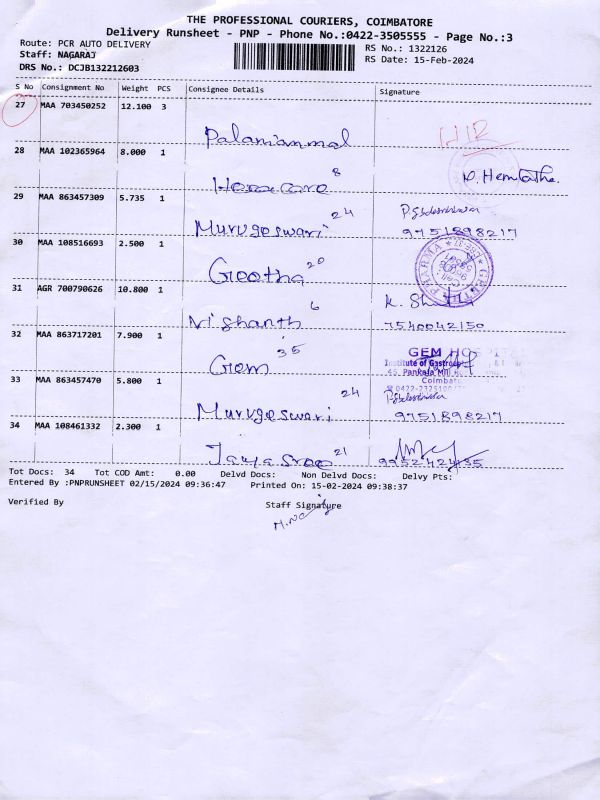 THE PROFESSIONAL COURIERS, COIMBATORE
Delivery Runsheet - PNP - Phone No.:0422-3505555 - Page No.:3
Route: PCR AUTO DELIVERY
RS No.: 1322126
Staff: NAGARAJ
RS Date: 15-Feb-2024
DRS No.: DCJB132212603
S No Consignment No Weight PCS Consignee Details Signature
27 MAA 703450252 12.100 3
Palaniammal
28 MAA 102365964 8.000 1
Homecare 8 D. Hemlatha.
29 MAA 863457309 5.735 1
Murugeswari 24 9751898217
30 MAA 108516693 2.500 1
Geetha 20
31 AGR 700790626 10.800 1
Nishanth 6 7540042150
32 MAA 863717201 7.900 1
Gem 35 GEM HOSPIT
Institute of Gastroe
45, Pankaja Mill
Coimbato
33 MAA 863457470 5.800 1
Murugeswari 24 9751898217
34 MAA 108461332 2.300 1
Jayasree 21 9952424435
Tot Docs: 34 Tot COD Amt: 0.00 Delvd Docs: Non Delvd Docs: Delvy Pts:
Entered By :PNPRUNSHEET 02/15/2024 09:36:47 Printed On: 15-02-2024 09:38:37
Verified By Staff Signature